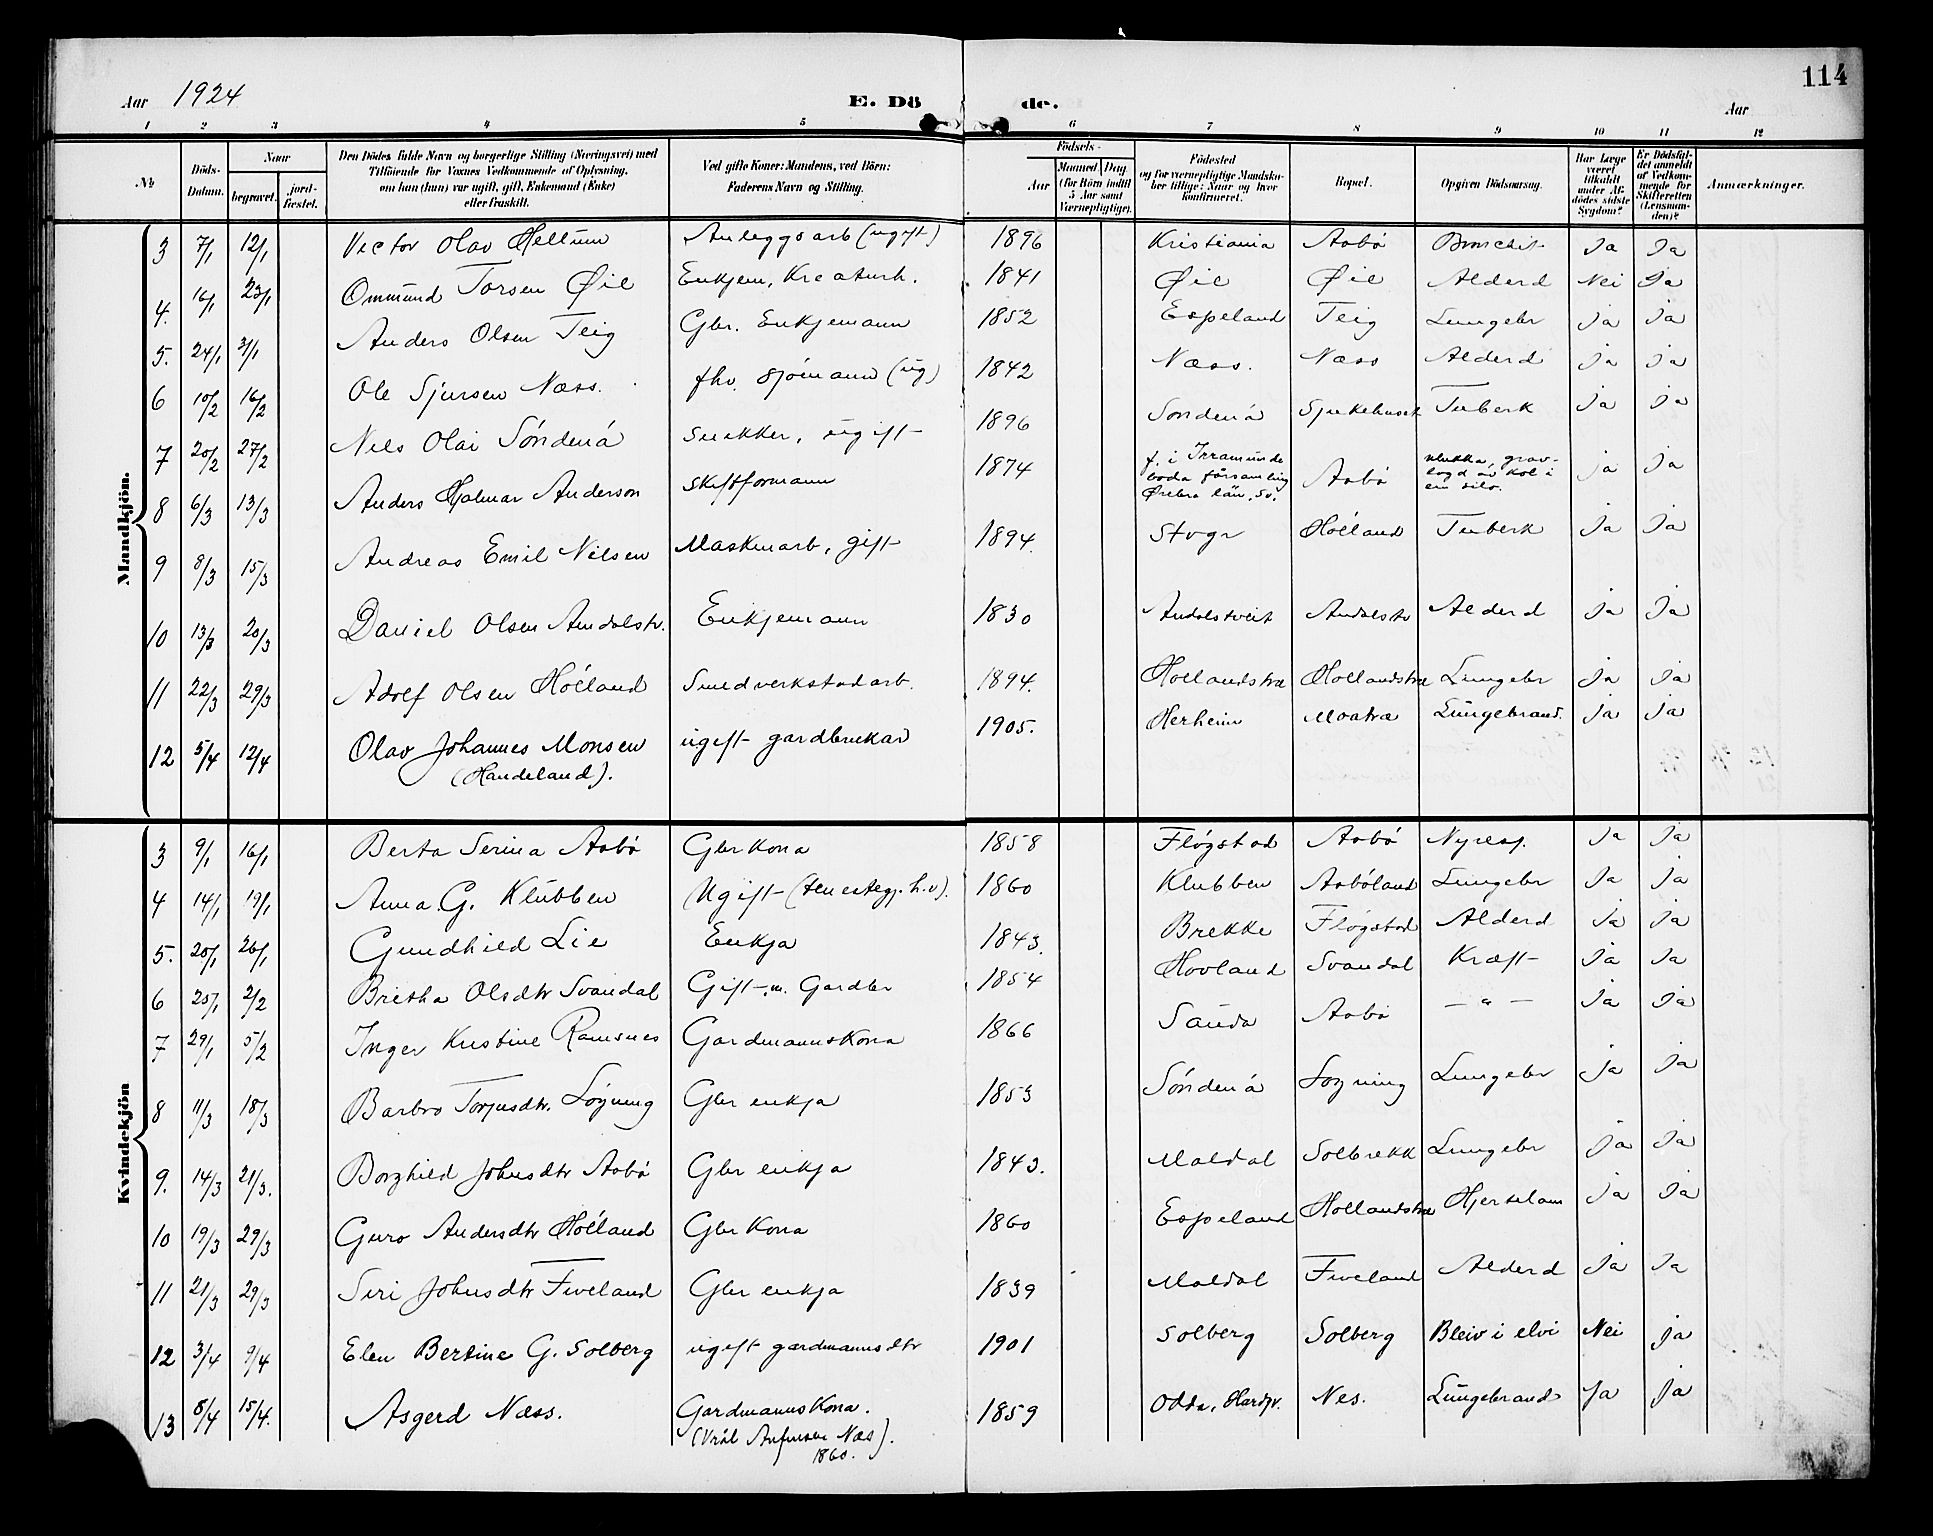 114
Aar 1924
E. Dö de.
Aar
1 2 3 4 5 6 7 8 9 10 11 12
No
Döds-Datum.
Naar begravet. jord-fæstet.
Den Dödes fulde Navn og borgerlige Stilling (Næringsvei) med Tilföiende for Voxnes Vedkommende af Oplysning, om han (hun) var ugift, gift, Enkemand (Enke) eller fraskilt.
Ved gifte Koner: Mandens, ved Börn: Faderens Navn og Stilling.
Födsels-
Aar Maaned Dag (for Börn indtil 5 Aar samt Værnepligtige).
Födested og for værnepligtige Mandskaber tillige: Naar og hvor konfirmeret.
Bopæl.
Opgiven Dödsaarsag.
Har Læge været tilkaldt under Afdödes sidste Sygdom?
Er Dödsfaldet anmeldt af Vedkommende for Skifteretten (Lensmanden)?
Anmærkninger.
Mandkjön.
3 7/1 12/1 Victor Olav Hellum Anleggsarb (ugift) 1896 Kristiania Aabø Bronchit Ja Ja
4. 16/1 23/1 Ommund Torsen Øie Enkjem, Kreaturh. 1841 Øie Øie Alderd Nei Ja
5. 24/1 31/1 Anders Olsen Teig Gbr. Enkjemann 1852 Espeland Teig Lungebr Ja Ja
6 10/2 16/2 Ole Sjursen Næss. fhv. Sjömann (ug) 1842 Næss. Næss Alderd Ja Ja
7 20/2 27/2 Nils Olai Söndenå Snekker, ugift 1896 Sondenå Sjukehuset Tuberk Ja Ja
8 6/3 13/3 Anders Hjalmar Anderson Skiftformann 1874 f. i Irramunde boda församling Örebro län, Sv. Aabø ulukka, gravlogd av kol i ein silo. Ja Ja
9 8/3 15/3 Andreas Emil Nilsen Maskinarb, gift 1894. Stvgr Hölland Tuberk Ja Ja
10 13/3 20/3 Daniel Olsen Amdalstv. Enkjemann 1830 Amdalstveit Amdalstv Alderd Ja Ja
11 22/3 29/3 Adolf Olsen Hölland Smedverkstadarb. 1894. Hollandstræ Hollandstræ Lungebr Ja Ja
12 5/4 12/4 Olav Johannes Monsen ugift gardbrukar 1905. Herheim Moatræ Lungebrand. Ja Ja
(Handeland).
Kvindekjön
3 9/1 16/1 Berta Serina Aabø Gbr Kona 1858 Flögstad Aabø Nyresj. Ja Ja
4 14/1 19/1 Anna G. Klubben Ugift (tenestegj. h.v). 1860 Klubben Aaböland Lungebr Ja Ja
5. 20/1 26/1 Gundhild Lie Enkja 1843. Brekke Flögstad Alderd Ja Ja
6 25/1 2/2 Britha Olsdtr Svandal Gift m. Gardbr 1854 Hovland Svandal Kræft Ja Ja
7 29/1 5/2 Inger Kristine Ramsnes Gardmannskona 1866 Sauda Aabø — " — Ja Ja
8 11/3 18/3 Barbro Torjusdtr. Lögning Gbr enkja 1853 Söndenå Logning Lungebr Ja Ja
9. 14/3 21/3. Borghild Johnsdtr Aabø Gbr enkja 1843. Maldal Solbrekk Lungebr Ja Ja
10 19/3 29/3 Guro Andersdtr Hölland Gbr Kona 1860 Espeland Hollandstræ Hjertelam Ja Ja
11 21/3 29/3 Siri Johnsdtr Fiveland Gbr enkja 1839 Maldal Fiveland Alderd Ja Ja
12 3/4 9/4 Elen Bertine G. Solberg ugift gardmannsdtr 1901 Solberg Solberg Bleiv i elvi Nei Ja
13 8/4 15/4. Asgerd Næss. Gardmannskona. 1859 Odda, Hardgr. Nes. Lungebrand Ja Ja
(Vrål Anfinsen Næs).
1860.